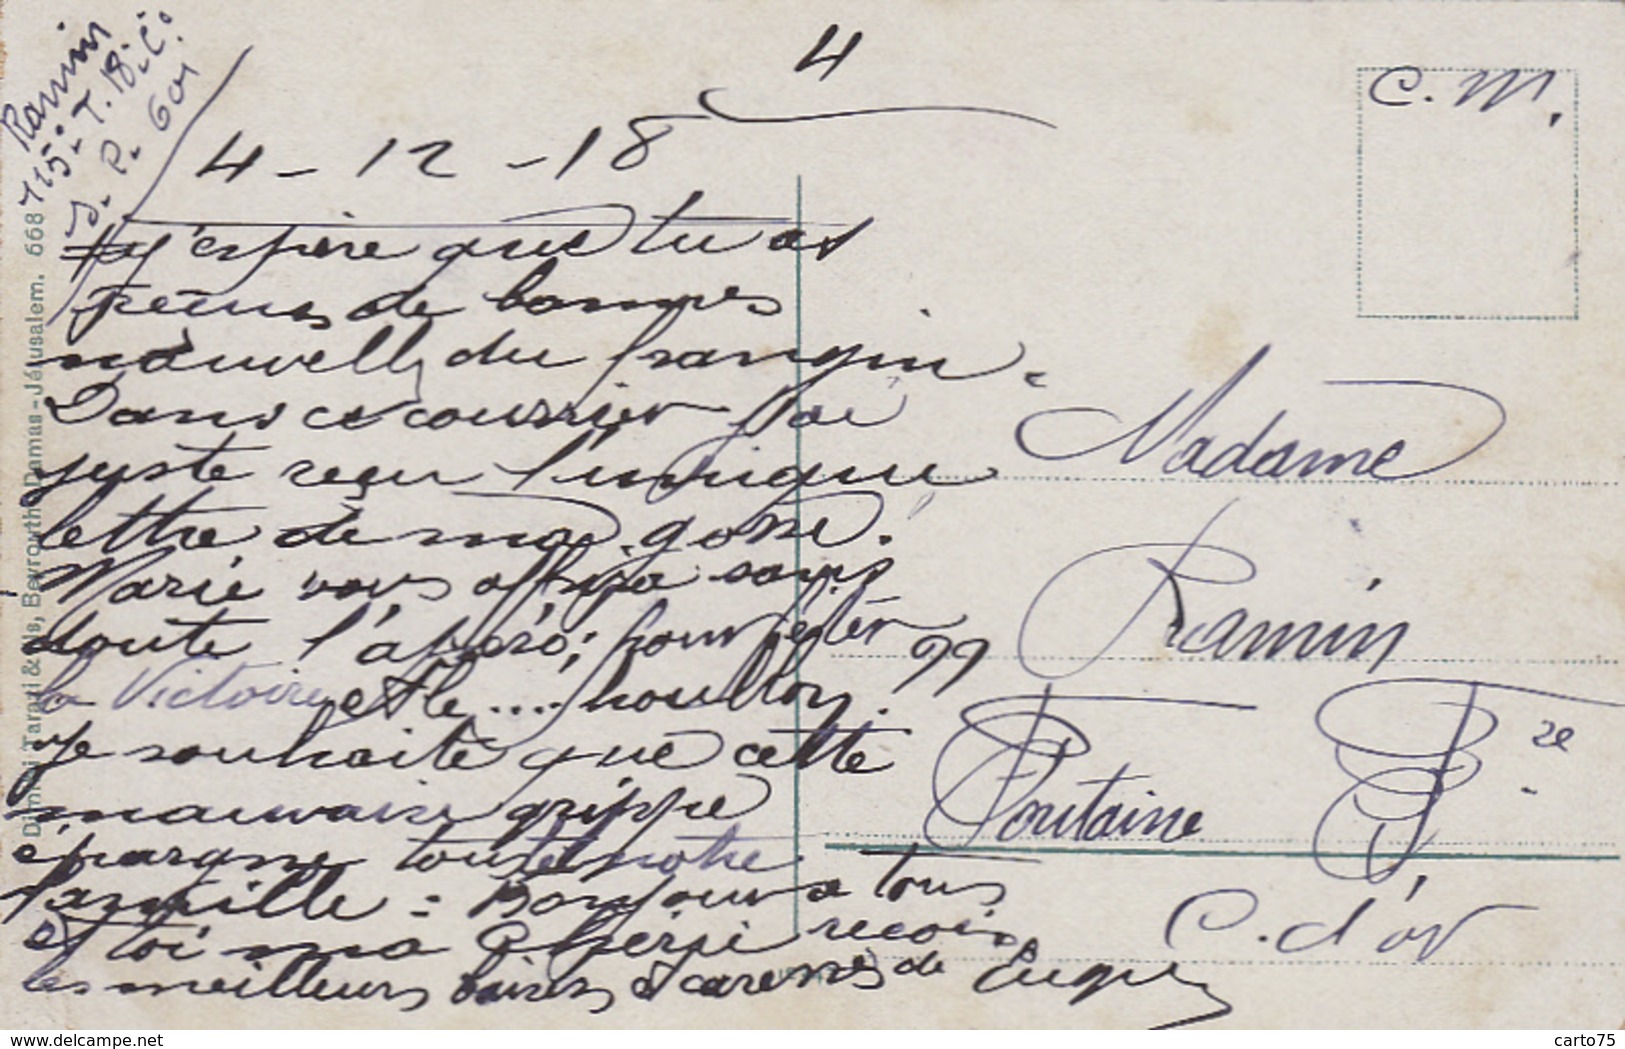 Ramin
115e T. 18e C.
S. P. 601
4
4 - 12 - 18
C. M.
J'espère que tu as
reçus de bonnes
nouvelles du frangin.
Dans ce courrier j'ai
juste reçu l'unique
lettre de ma gosse.
Marie vous offrira sans
doute l'apéro; pour fêter
la Victoire et le ....
Je souhaite que cette
mauvaise grippe
épargne toute notre
famille = Bonjour à tous
et toi ma chérie reçois
les meilleurs baisers & caresses de Eugène
Madame
Ramin
Fontaine F. se
C. d'or
Dimitri Tarazi & fils, Beyrouth-Damas-Jérusalem. 668
www.delcampe.net
carto75